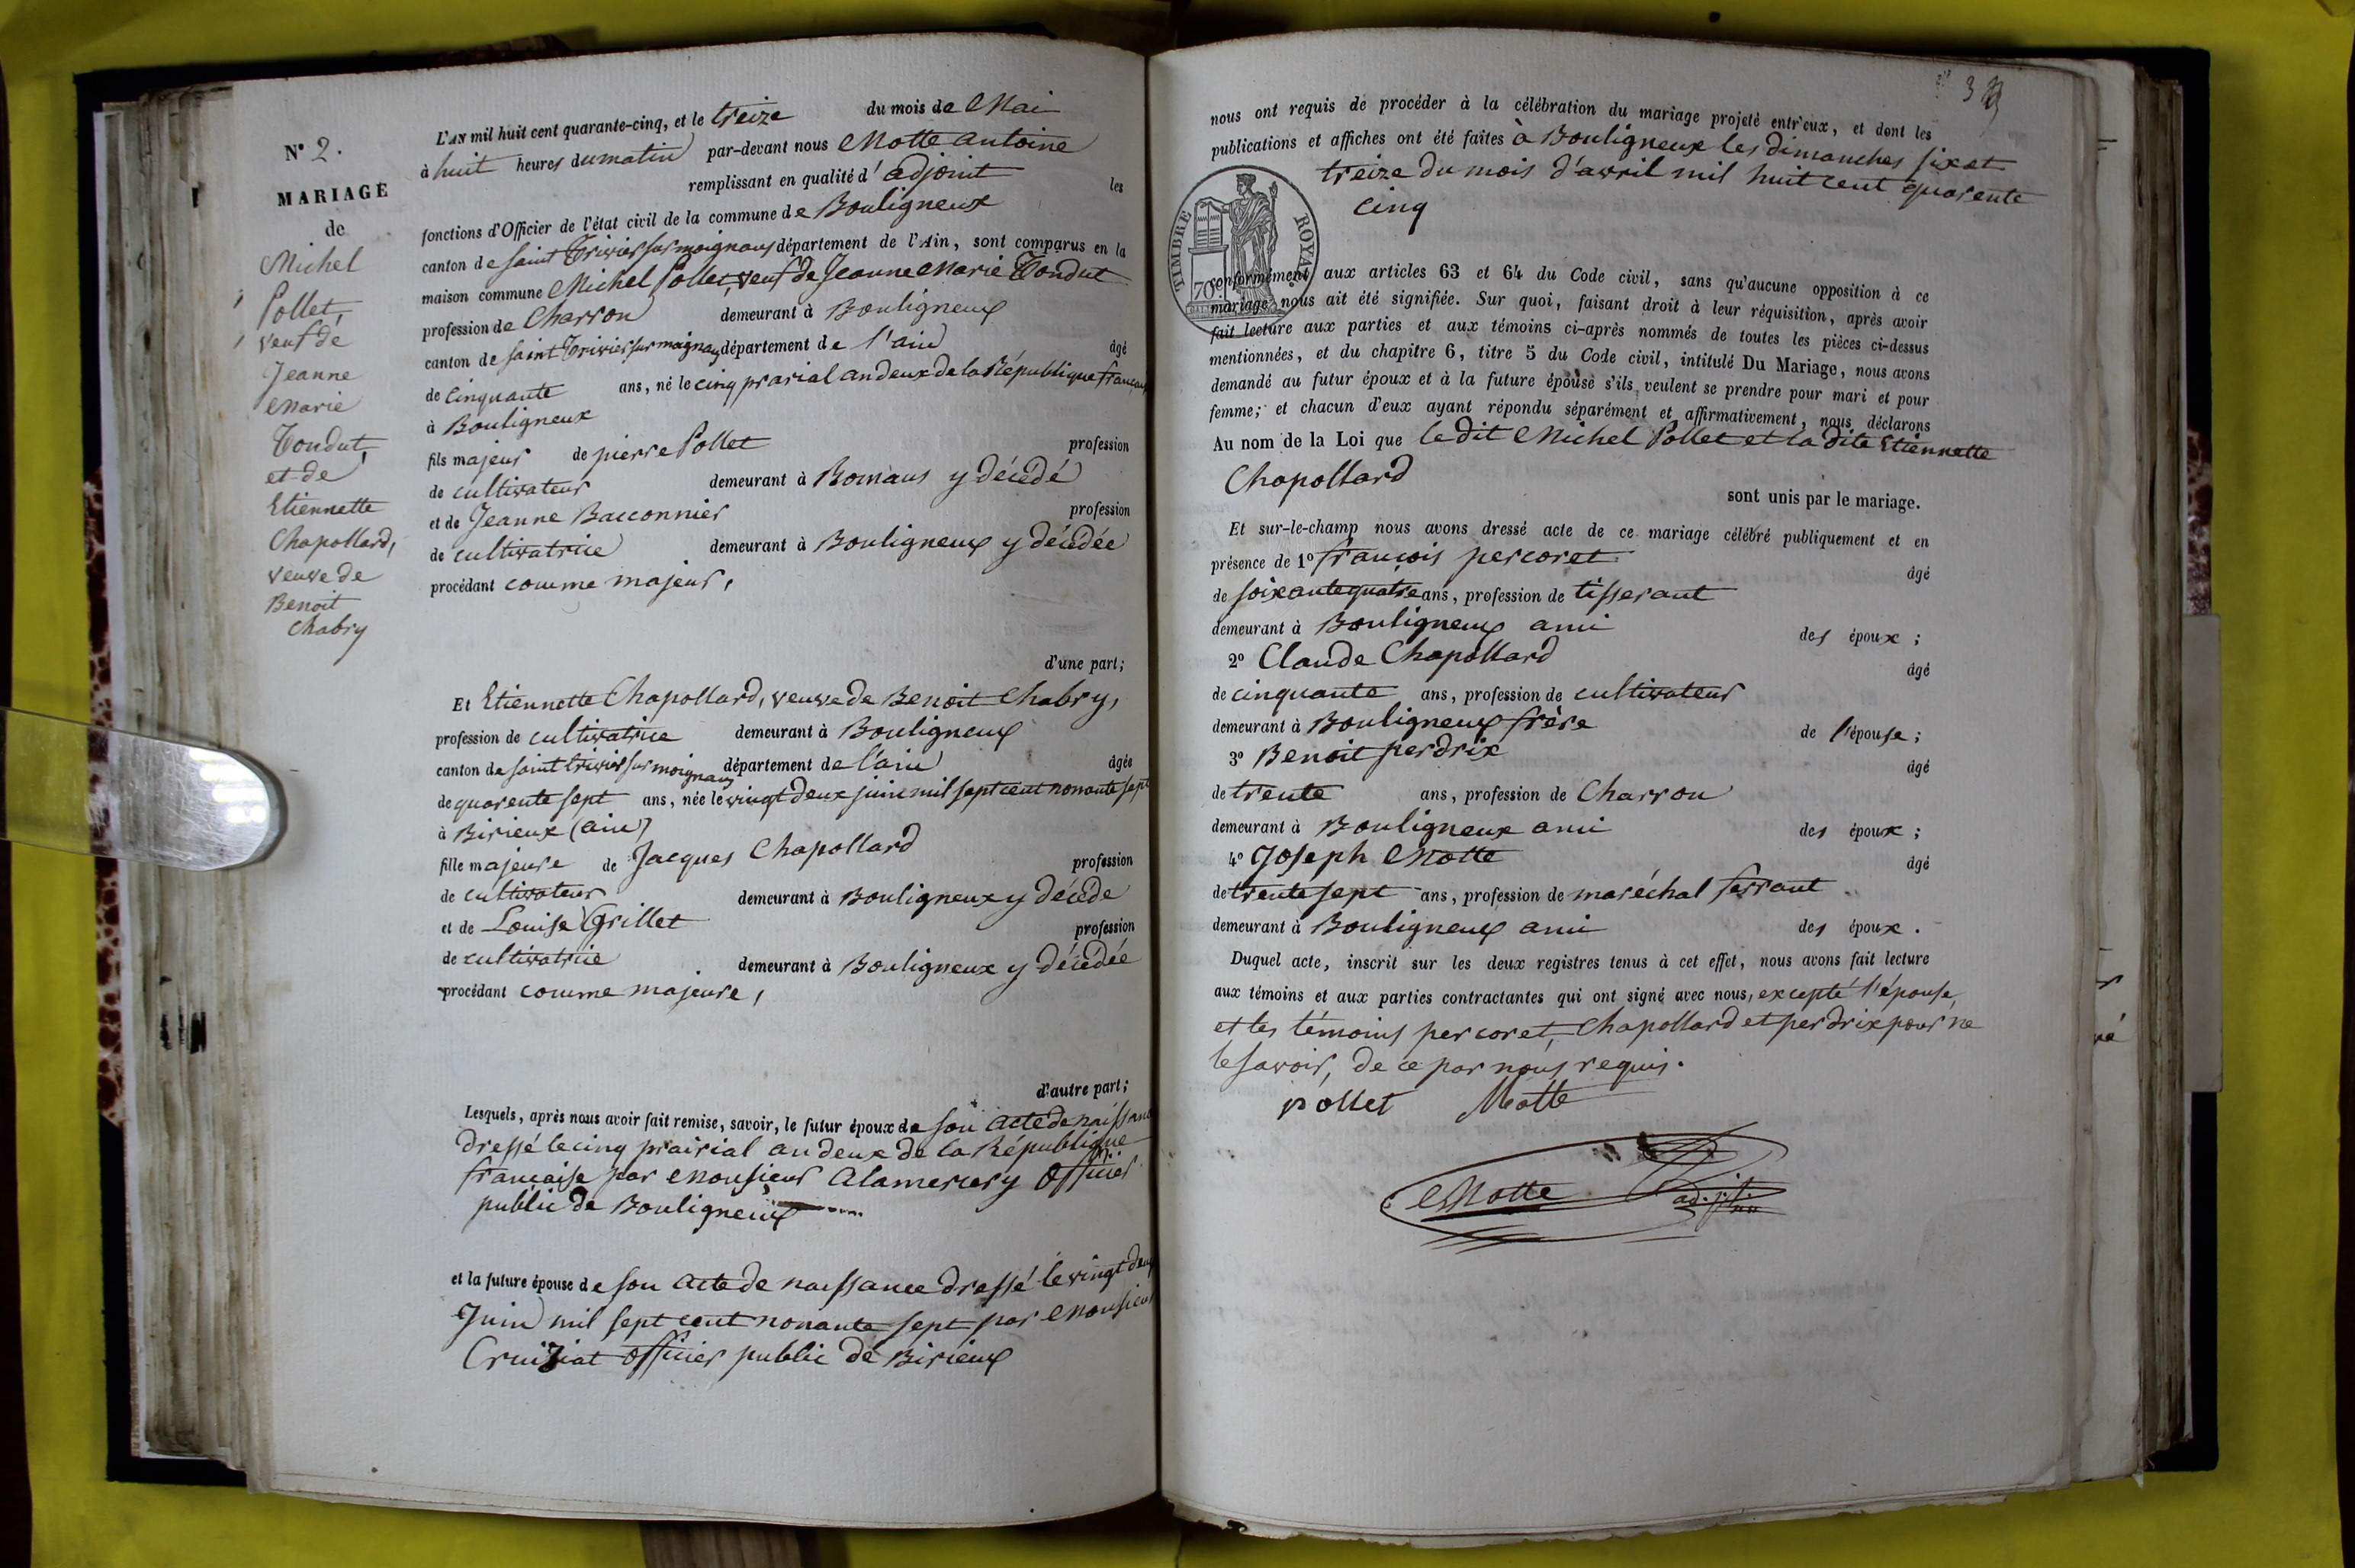 N° 2.
MARIAGE
de
Michel
Pollet,
veuf de
Jeanne
Marie
Tondut,
et de
Etiennette
Chapollard,
veuve de
Benoit
Chabry
L'AN mil huit cent quarante-cinq, et le treize du mois de Mai
à huit heures du matin par-devant nous Motte antoine
remplissant en qualité d'adjoint les
fonctions d'Officier de l'état civil de la commune de Bouligneux
canton de saint Trivier sur moignans département de l'Ain, sont comparus en la
maison commune Michel Pollet, veuf de Jeanne Marie Tondut
profession de Charron demeurant à Bouligneux
canton de saint Trivier sur moignans département de l'ain âgé
de Cinquante ans, né le cinq prarial an deux de la République française
à Bouligneux
fils majeur de pierre Pollet profession
de cultivateur demeurant à Romans y décédé
et de Jeanne Bacconnier profession
de cultivatrice demeurant à Bouligneux y décédée
procédant comme majeur,
d'une part;
Et Etiennette Chapollard, veuve de Benoit Chabry,
profession de cultivatrice demeurant à Bouligneux
canton de saint trivier sur moignans département de l'ain âgée
de quarente sept ans, née le vingt deux juin mil sept cent nonante sept
à Birieux (ain)
fille majeure de Jacques Chapollard profession
de cultivateur demeurant à Bouligneux y décédé
et de Louise Grillet profession
de cultivatrice demeurant à Bouligneux y décédée
procédant comme majeure,
d'autre part;
Lesquels, après nous avoir fait remise, savoir, le futur époux de son acte de naissance
dressé le cinq prairial an deux de la République
française par Monsieur Alamercery officier
public de Bouligneux
et la future épouse de son acte de naissance dressé le vingt deux
Juin mil sept cent nonante sept par Monsieur
Cruiziat officier public de Birieux
nous ont requis de procéder à la célébration du mariage projeté entr'eux, et dont les
publications et affiches ont été faites à Bouligneux les dimanches six et
treize du mois d'avril mil huit cent quarente
cinq
TIMBRE ROYAL
70
conformément aux articles 63 et 64 du Code civil, sans qu'aucune opposition à ce
mariage nous ait été signifiée. Sur quoi, faisant droit à leur réquisition, après avoir
fait lecture aux parties et aux témoins ci-après nommés de toutes les pièces ci-dessus
mentionnées, et du chapitre 6, titre 5 du Code civil, intitulé Du Mariage, nous avons
demandé au futur époux et à la future épouse s'ils veulent se prendre pour mari et pour
femme; et chacun d'eux ayant répondu séparément et affirmativement, nous déclarons
Au nom de la Loi que le dit Michel Pollet et la dite Etiennette
Chapollard
sont unis par le mariage.
Et sur-le-champ nous avons dressé acte de ce mariage célébré publiquement et en
présence de 1° françois percoret âgé
de soixante quatre ans, profession de tisserant
demeurant à Bouligneux ami des époux;
2° Claude Chapollard âgé
de cinquante ans, profession de cultivateur
demeurant à Bouligneux frère de l'épouse;
3° Benoit perdrix âgé
de trente ans, profession de Charron
demeurant à Bouligneux ami des époux;
4° Joseph Motte âgé
de trente sept ans, profession de maréchal ferrant
demeurant à Bouligneux ami des époux.
Duquel acte, inscrit sur les deux registres tenus à cet effet, nous avons fait lecture
aux témoins et aux parties contractantes qui ont signé avec nous, excepté l'épouse,
et les témoins percoret, Chapollard et perdrix pour ne
le savoir, de ce par nous requis.
pollet Motte
Motte adjoint